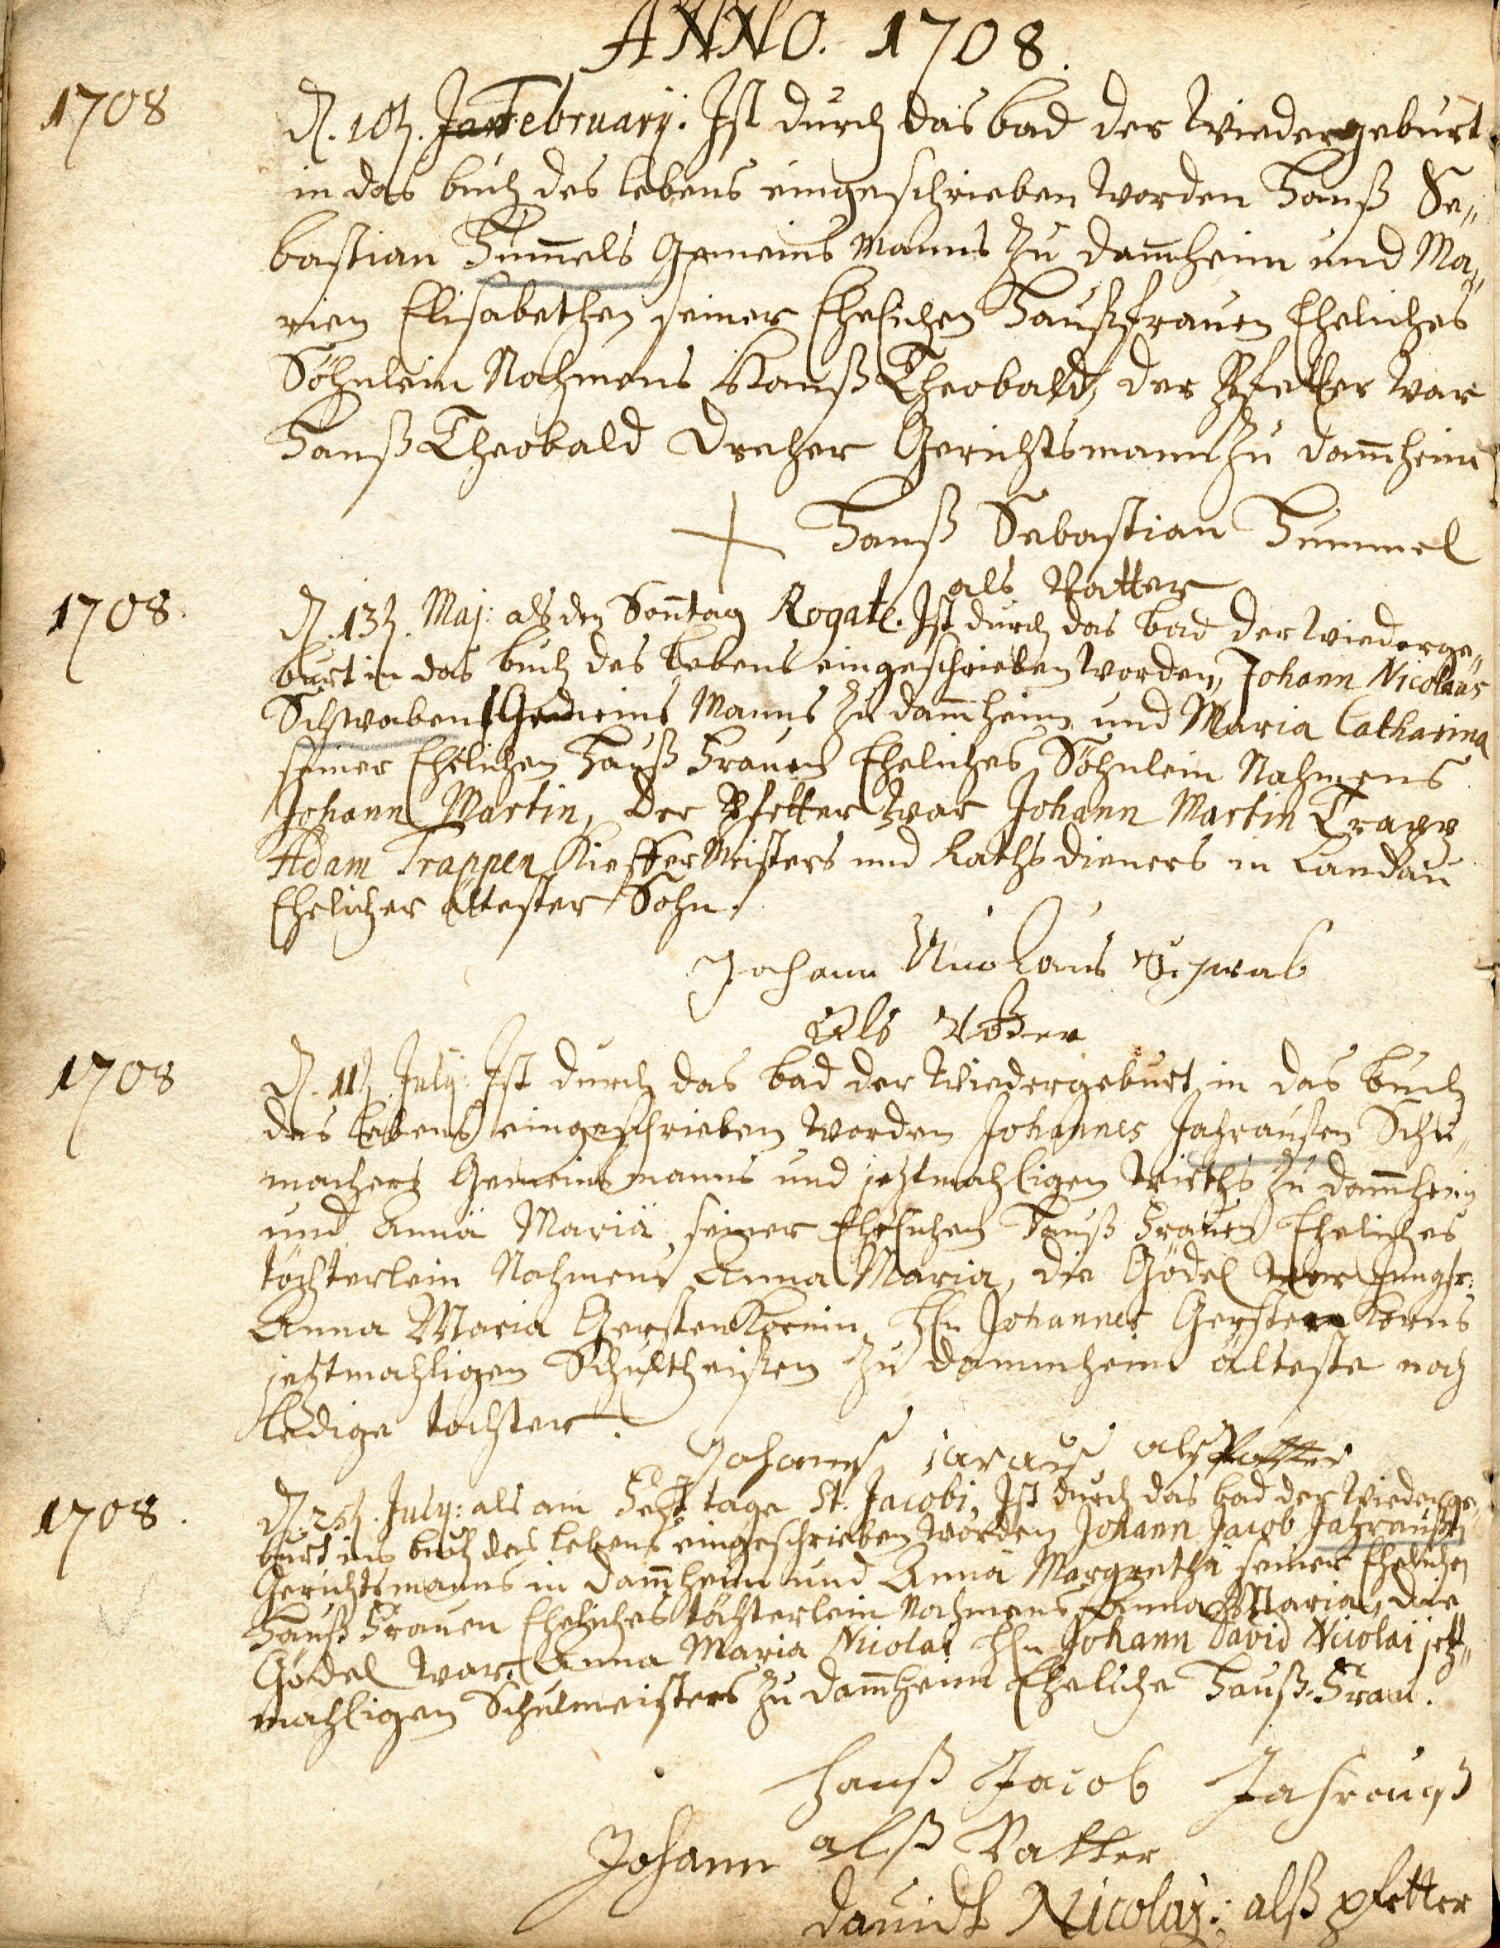 ANNO. 1708.
1708
d. 10t. Jan February: Ist durch das bad der Wiedergeburt
in das buch des lebens eingeschrieben worden Hanß Se„
bastian Hum̄els Gemeins Manns zu Dam̄heim und Ma„
rien Elisabethen seiner Ehelichen Haußfrauen Eheliches
Söhnlein Nahmens Hanß Theobald, der Pfetter war
Hanß Theobald Dreher Gerichtsmann zu Dam̄heim
Hanß Sebastian Hummel
als Vatter
1708.
d. 13t. Maj: als den Son̄tag Rogate. Ist durch das bad der Wiederge„
burt in das buch des lebens eingeschrieben worden, Johann Nicolaus
Schwaben Gemeins Manns zu Dam̄heim und Maria Catharina
seiner Ehelichen Hauß Frauen Eheliches Söhnlein Nahmens
Johann Martin, der Pfetter war Johann Martin Trapp
Adam Trappen Kieffer Meisters und Rathsdieners in Landau
Ehelicher ältester Sohn.
Johann Nicolaus Schwab
Als Vatter
1708
d. 11t. July: Ist durch das bad der Wiedergeburt in das buch
des lebens eingeschrieben worden Johannes Jahraußen Schu„
machers Gemeinsmanns und jetztmahligen Wirths zu Dam̄heim
und Annä Mariä, seiner Ehelichen Hauß Frauen Eheliches
töchterlein Nahmens Anna Maria, die Gödel war Jungfr:
Anna Maria Gerstenkornin, Hn Johannes Gerstenkorns
jetztmahligen Schultheißen zu Dammheim älteste noch
ledige tochter.
Johannes jarauß als Vatter
1708.
d. 25t. July: als am Fest tage St. Jacobi, Ist durch das bad der Wiederge„
burt ins buch des lebens eingeschrieben worden Johann Jacob Jahraußen
Gerichtsmanns in Dam̄heim und Annä Margrethä seiner Ehelichen
Hauß Frauen Eheliches töchterlein Nahmens Anna Maria, die
Gödel war Anna Maria Nicolai Hn Johann David Nicolai jetz„
mahligen Schulmeisters zu Dam̄heim Eheliche Hauß-Frau.
Hanß Jacob Jahrauß
alß Vatter
Johann
Davidt Nicolaÿ: alß pfetter